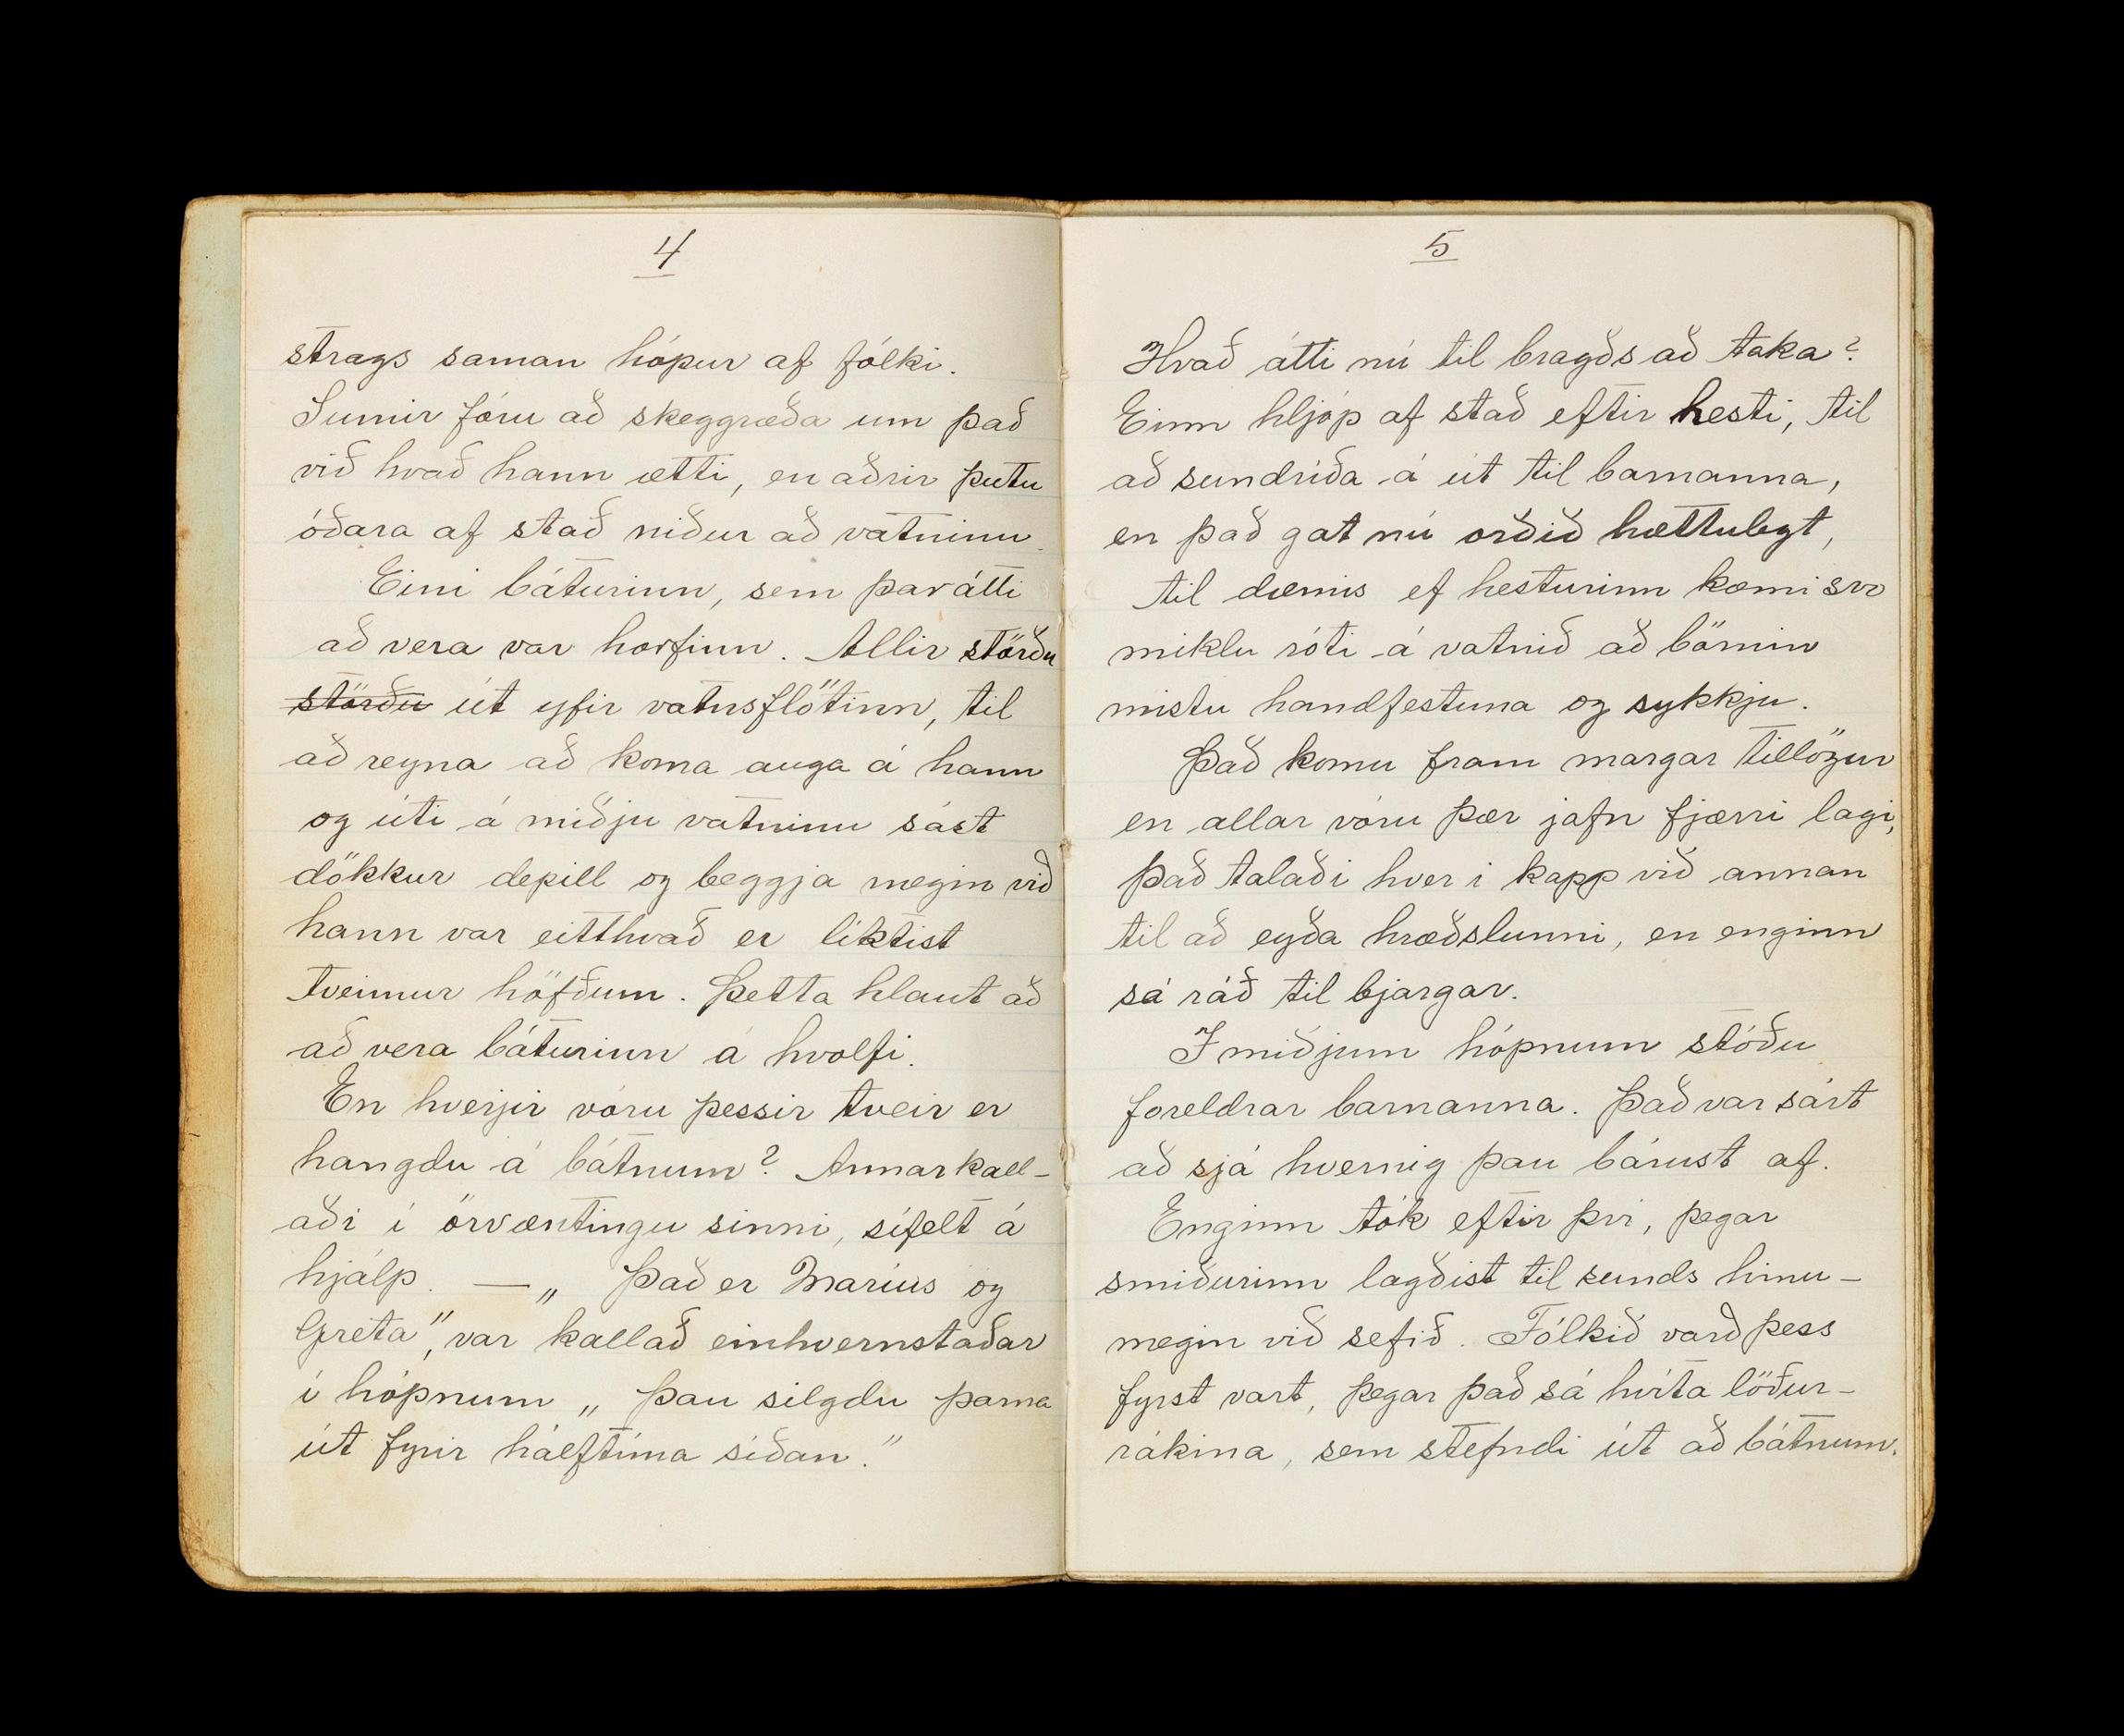 4
strags saman hópur af fólki.
Sumir fóru að skeggræða um það
við hvað hann ætti, en aðrir þutu
óðara af stað niður að vatninu.
Eini báturinn, sem þar átti
að vera var horfinn. Allir störðu
störðu út yfir vatnsflötinn, til
að reyna að koma auga á hann
og úti á miðju vatninu sást
dökkur depill og beggja megin við
hann var eitthvað er líktist
tveimur höfðum. Þetta hlaut að
að vera báturinn á hvolfi.
En hverjir vóru þessir tveir er
hangdu á bátnum? Annar kall-
aði í örvæntingu sinni, sífelt á
hjálp. — „ Það er Marius og
Greta", var kallað einhvernstaðar
í hópnum „ þau silgdu þarna
út fyrir hálftíma síðan."
5
Hvað átti nú til bragðs að taka?
Einn hljóp af stað eftir hesti, til
að sundríða á út til barnanna,
en það gat nú orðið hættulegt,
til dæmis ef hesturinn kæmi svo
miklu róti á vatnið að börnin
mistu handfestuna og sykkju.
Það komu fram margar tillögur
en allar vóru þær jafn fjærri lagi,
það talaði hver í kapp við annan
til að eyða hræðslunni, en enginn
sá ráð til bjargar.
Í miðjum hópnum stóðu
foreldrar barnanna. Það var sárt
að sjá hvernig þau bárust af.
Enginn tók eftir því, þegar
smiðurinn lagðist til sunds hinu-
megin við sefið. Fólkið varð þess
fyrst vart, þegar það sá hvíta löður-
rákina, sem stefndi út að bátnum.